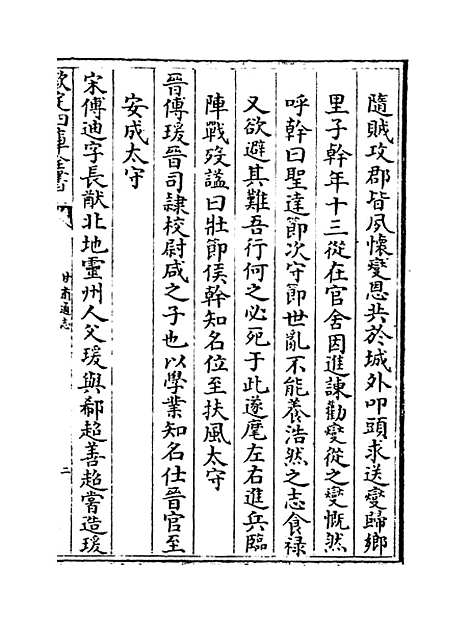 隨賊攻郡皆夙懷燮恩共於城外叩頭求送燮歸鄉
里子幹年十三從在官舍因進諫勸燮從之燮慨然
呼幹曰聖達節次守節世亂不能養浩然之志食祿
又欲避其難吾行何之必死于此遂麾左右進兵臨
陣戰歿謚曰壯節侯幹知名位至扶風太守
晉傅瑗晉司隸校尉咸之子也以學業知名仕晉官至
安成太守
宋傅迪字長猷北地靈州人父瑗與郗超善超嘗造瑗
欽定四庫全書
甘肅通志
二